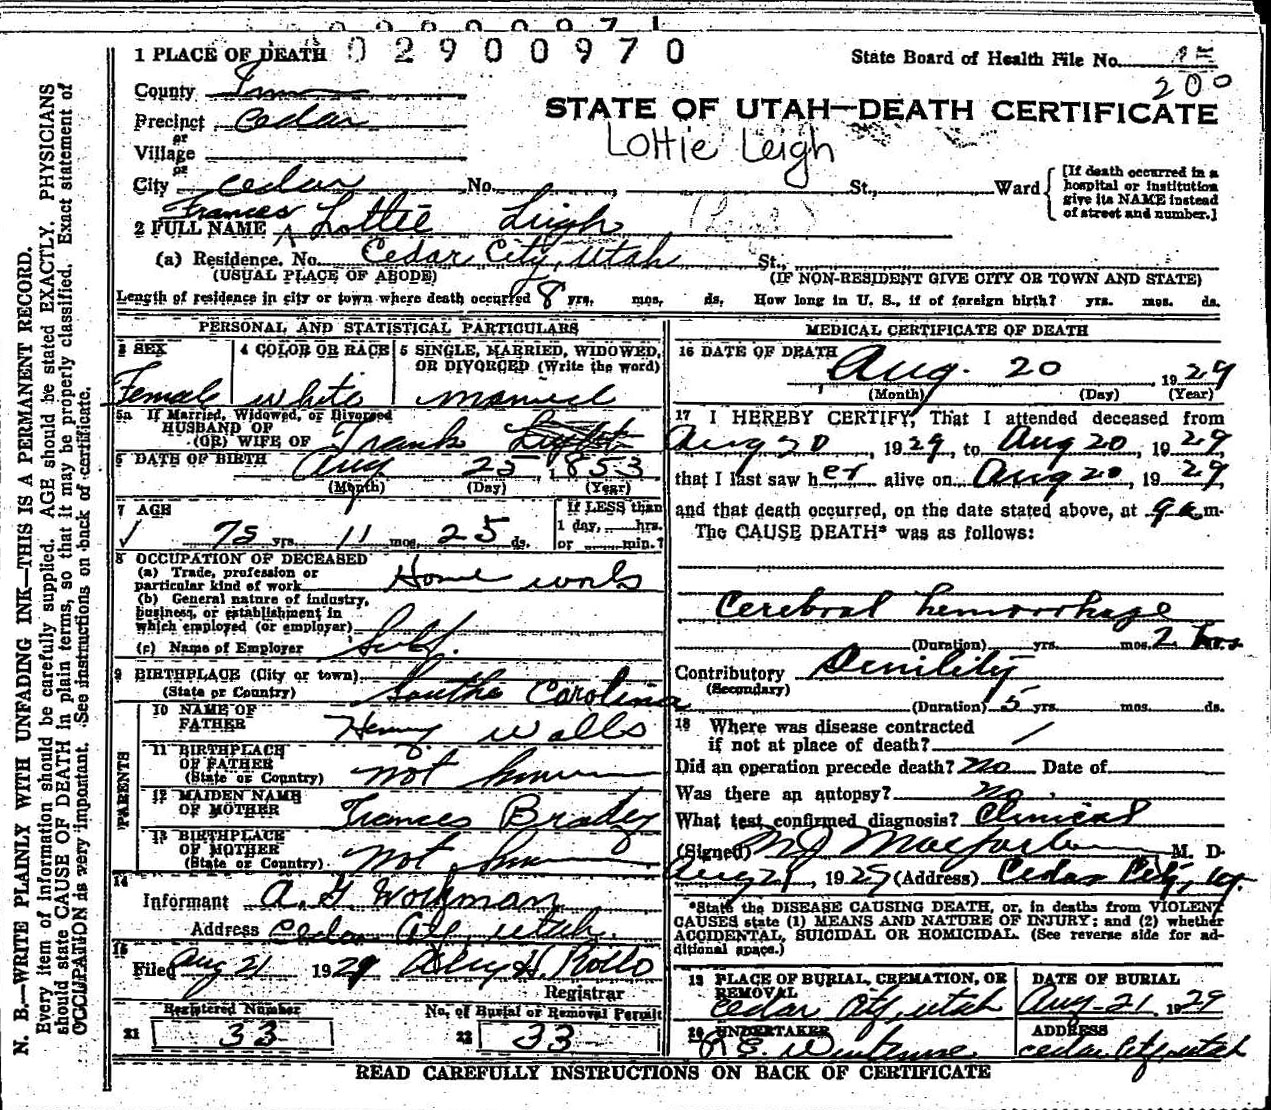 02900970
1 PLACE OF DEATH
State Board of Health File No.
200
County Iron
STATE OF UTAH—DEATH CERTIFICATE
Precinct Cedar
or
Village
Lottie Leigh
or
City Cedar No. St., Ward
[If death occurred in a hospital or institution give its NAME instead of street and number.]
Frances
2 FULL NAME ^ Lottie Leigh
(a) Residence. No. Cedar City, Utah St.,
(USUAL PLACE OF ABODE) (IF NON-RESIDENT GIVE CITY OR TOWN AND STATE)
Length of residence in city or town where death occurred 8 yrs. mos. ds. How long in U. S., if of foreign birth? yrs. mos. ds.
PERSONAL AND STATISTICAL PARTICULARS
3 SEX
Female
4 COLOR OR RACE
white
5 SINGLE, MARRIED, WIDOWED,
OR DIVORCED (Write the word)
married
5a If Married, Widowed, or Divorced
HUSBAND OF
(OR) WIFE OF Frank
6 DATE OF BIRTH Aug 25, 1853
(Month) (Day) (Year)
7 AGE
75 yrs. 11 mos. 25 ds.
If LESS than
1 day, hrs.
or min.?
8 OCCUPATION OF DECEASED
(a) Trade, profession or
particular kind of work Home work
(b) General nature of industry,
business, or establishment in
which employed (or employer)
(c) Name of Employer Self.
9 BIRTHPLACE (City or town)
(State or Country) South Carolina
PARENTS
10 NAME OF
FATHER Henry Walls
11 BIRTHPLACE
OF FATHER
(State or Country) not known
12 MAIDEN NAME
OF MOTHER Frances Bradley
13 BIRTHPLACE
OF MOTHER
(State or Country) not known
14
Informant A. G. Workman
Address Cedar City, Utah.
15
Filed Aug 21 1929 H. Rollo
Registrar
Registered Number
21 33
No. of Burial or Removal Permit
22 33
MEDICAL CERTIFICATE OF DEATH
16 DATE OF DEATH
Aug. 20, 1929
(Month) (Day) (Year)
17 I HEREBY CERTIFY, That I attended deceased from
Aug 20, 1929, to Aug 20, 1929,
that I last saw her alive on Aug 20, 1929,
and that death occurred, on the date stated above, at 9 a m.
The CAUSE DEATH* was as follows:
Cerebral hemorrhage
(Duration) yrs. mos. 2 hrs.
Contributory Senility
(Secondary)
(Duration) 5 yrs. mos. ds.
18 Where was disease contracted
if not at place of death?
Did an operation precede death? no Date of
Was there an autopsy? no.
What test confirmed diagnosis? Clinical
(Signed) M J Macfarlane M. D.
Aug 21, 1929 (Address) Cedar City, Ut.
*State the DISEASE CAUSING DEATH, or, in deaths from VIOLENT
CAUSES state (1) MEANS AND NATURE OF INJURY; and (2) whether
ACCIDENTAL, SUICIDAL OR HOMICIDAL. (See reverse side for ad-
ditional space.)
19 PLACE OF BURIAL, CREMATION, OR
REMOVAL
Cedar City, Utah
DATE OF BURIAL
Aug-21, 1929
20 UNDERTAKER
ADDRESS
Cedar City, Utah
READ CAREFULLY INSTRUCTIONS ON BACK OF CERTIFICATE
N. B.—WRITE PLAINLY WITH UNFADING INK—THIS IS A PERMANENT RECORD.
Every item of information should be carefully supplied. AGE should be stated EXACTLY. PHYSICIANS
should state CAUSE OF DEATH in plain terms, so that it may be properly classified. Exact statement of
OCCUPATION is very important. See instructions on back of certificate.